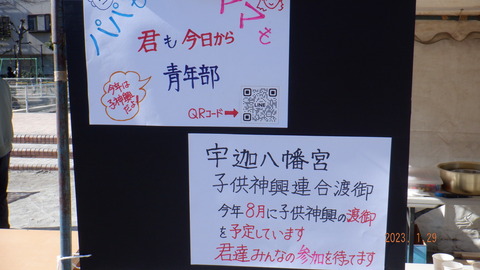 パパも
ママも
君も今日から
青年部
今年は
子神輿
だよ!
QRコード→
LINE
宇迦八幡宮
子供神輿連合渡御
今年8月に子供神輿の渡御
を予定しています
君達みんなの参加を待てます
2023 1 29